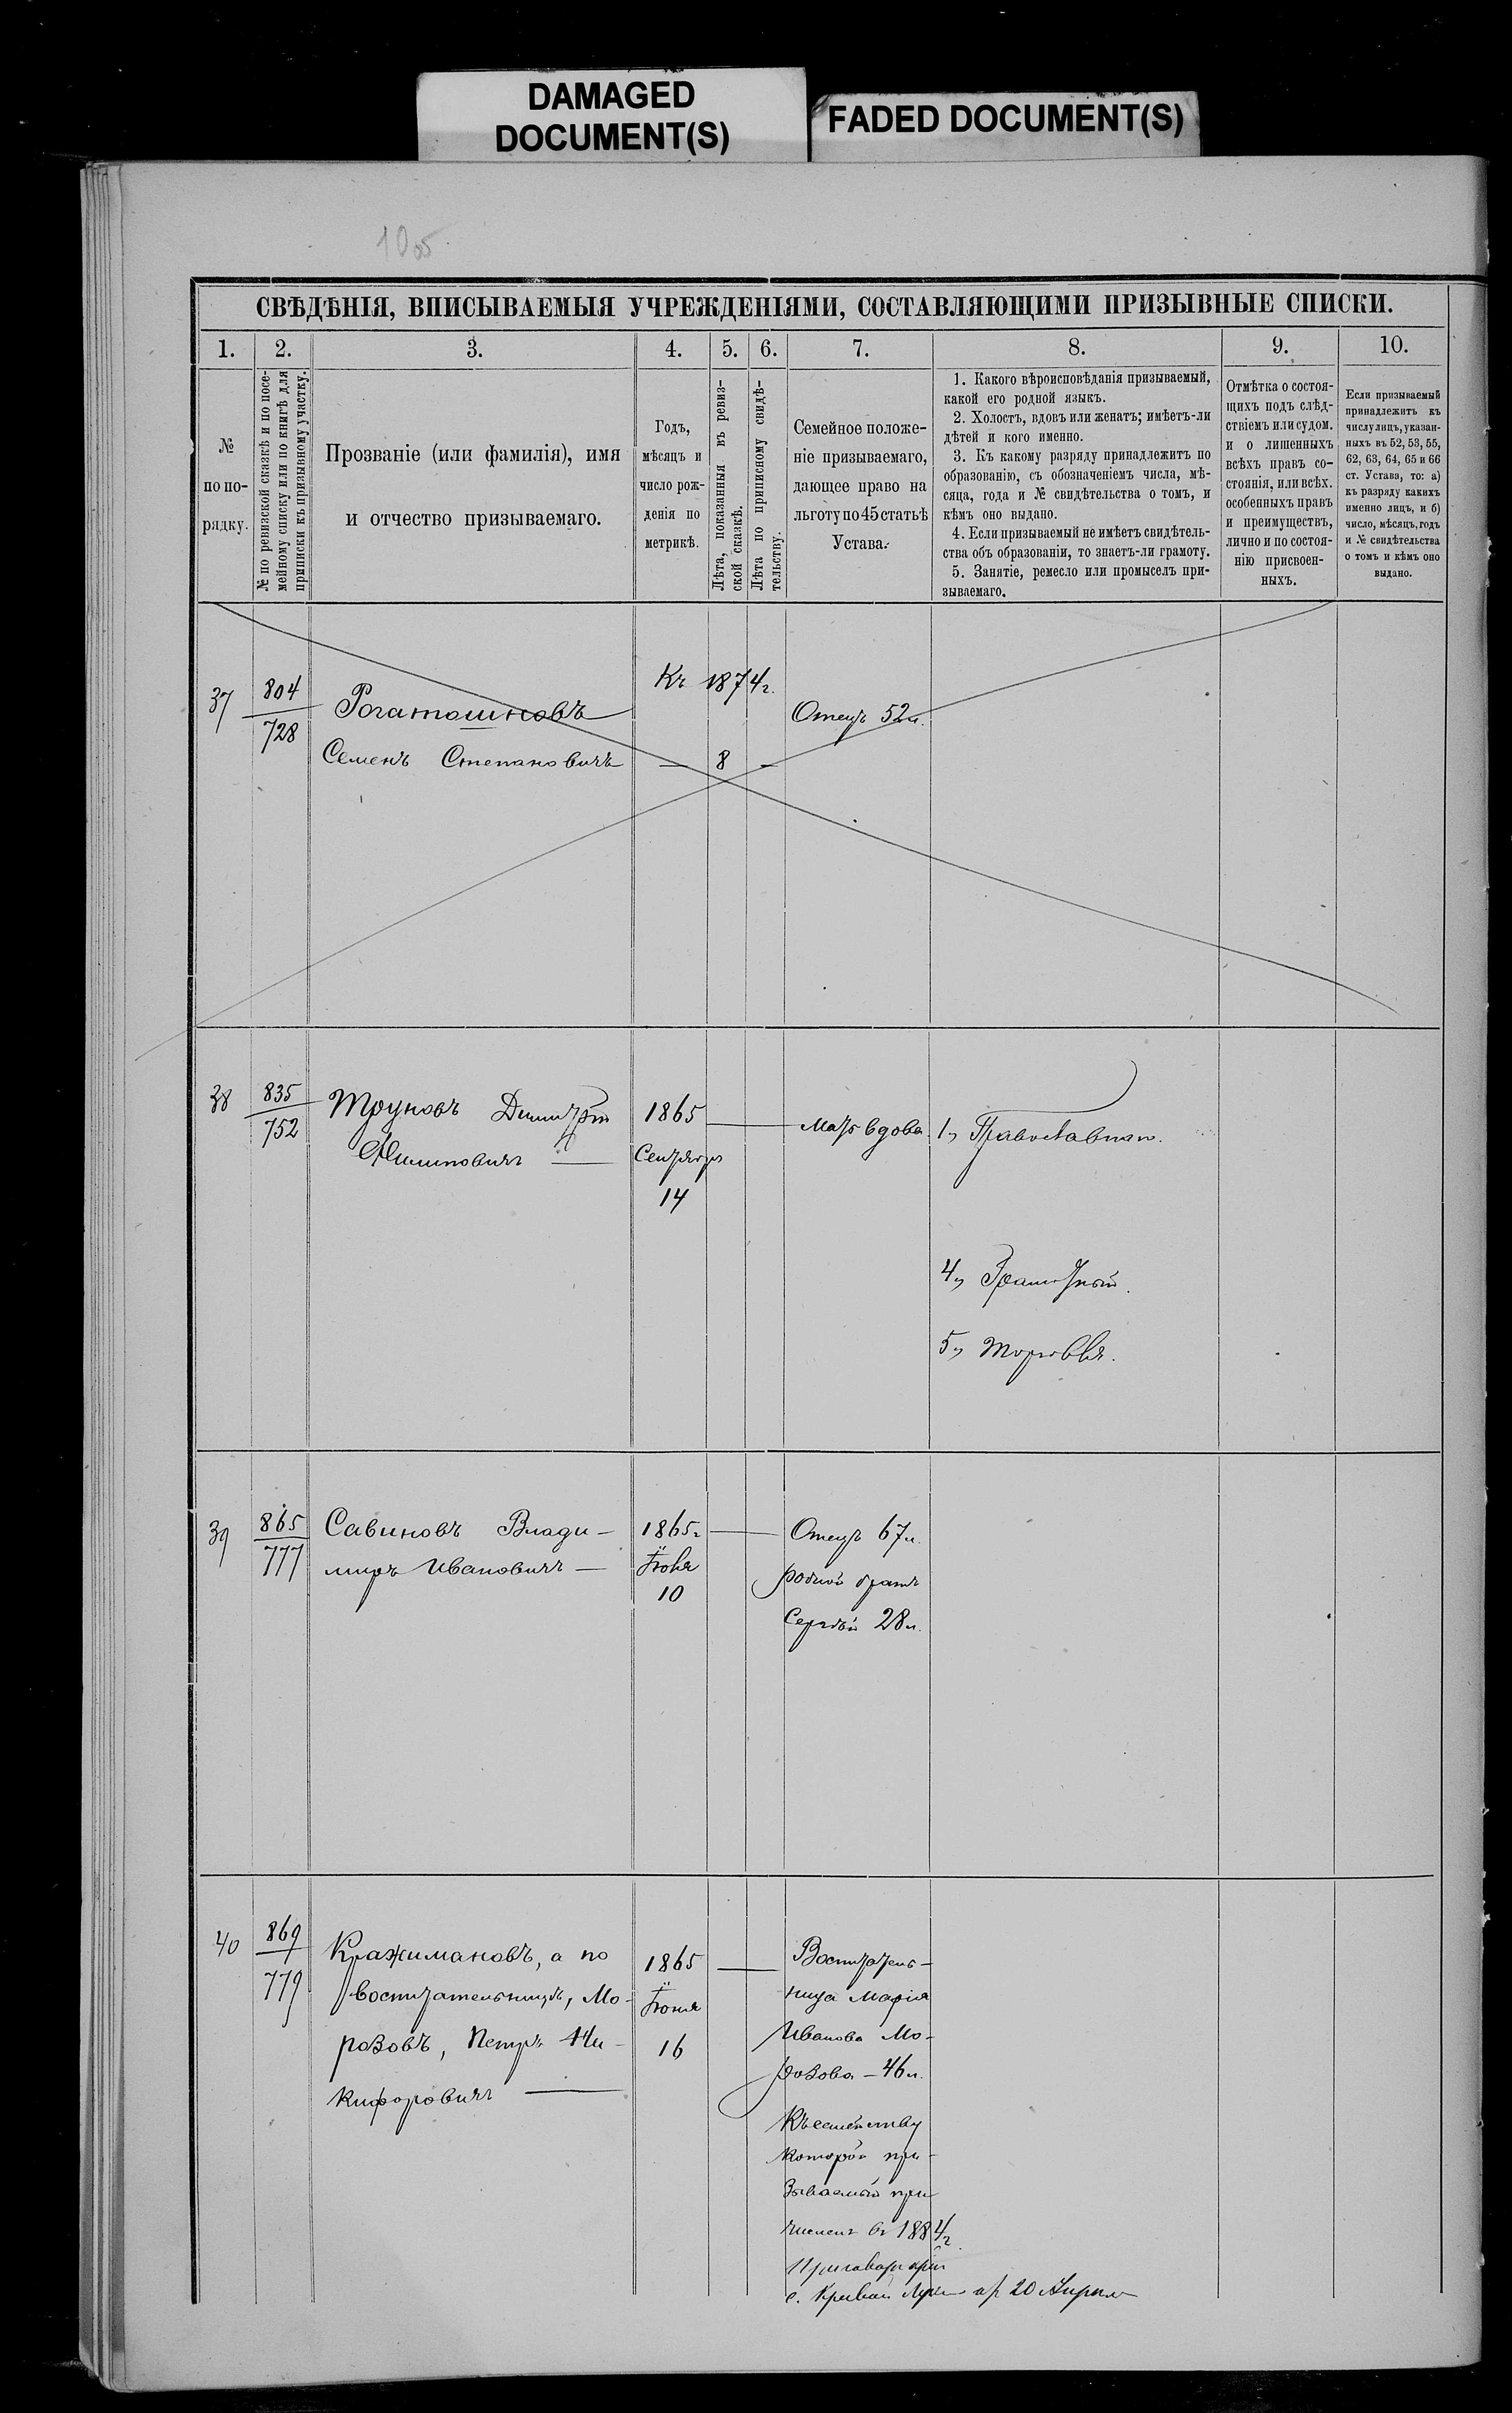 DAMAGED
DOCUMENT(S)
FADED DOCUMENT(S)
1005
СВѢДѢНІЯ, ВПИСЫВАЕМЫЯ УЧРЕЖДЕНІЯМИ, СОСТАВЛЯЮЩИМИ ПРИЗЫВНЫЕ СПИСКИ.
1. 2. 3. 4. 5. 6. 7. 8. 9. 10.
№
по по-
рядку.
№ по ревизской сказкѣ и по посе-
мейному списку или по книгѣ для
приписки къ призывному участку.
Прозваніе (или фамилія), имя
и отчество призываемаго.
Годъ,
мѣсяцъ и
число рож-
денія по
метрикѣ.
Лѣта, показанныя въ ревиз-
ской сказкѣ.
Лѣта по приписному свидѣ-
тельству.
Семейное положе-
ніе призываемаго,
дающее право на
льготу по 45 статьѣ
Устава.
1. Какого вѣроисповѣданія призываемый,
какой его родной языкъ.
2. Холостъ, вдовъ или женатъ; имѣетъ-ли
дѣтей и кого именно.
3. Къ какому разряду принадлежитъ по
образованію, съ обозначеніемъ числа, мѣ-
сяца, года и № свидѣтельства о томъ, и
кѣмъ оно выдано.
4. Если призываемый не имѣетъ свидѣтель-
ства объ образованіи, то знаетъ-ли грамоту.
5. Занятіе, ремесло или промыселъ при-
зываемаго.
Отмѣтка о состоя-
щихъ подъ слѣд-
ствіемъ или судом.
и о лишенныхъ
всѣхъ правъ со-
стоянія, или всѣх.
особенныхъ правъ
и преимуществъ,
лично и по состоя-
нію присвоен-
ныхъ.
Если призываемый
принадлежитъ къ
числу лицъ, указан-
ныхъ въ 52, 53, 55,
62, 63, 64, 65 и 66
ст. Устава, то: а)
къ разряду какихъ
именно лицъ, и б)
число, мѣсяцъ, годъ
и № свидѣтельства
о томъ и кѣмъ оно
выдано.
37
804
728
Рогатошновъ
Семенъ Степановичъ
Къ 1874г.
— 8 —
Отецъ 52л.
38
835
752
Труновъ Димитрій
Филиповичъ —
1865
Сентября
14
Мать вдова
1, Православнаго.
4, Грамотный.
5, Торговля.
39
865
777
Савиновъ Влади-
миръ Ивановичъ —
1865г
Іюня
10
Отецъ 67л.
родной братъ
Сергѣй 28л.
40
869
779
Кражимановъ, а по
воспитательницѣ, Мо-
розовъ, Петръ Ни-
кифоровичъ —
1865
Іюня
16
Воспитатель-
ница Марія
Иванова Мо-
розова — 46л.
Къ семейству
которой при-
зываемый при
численъ въ 1884г.
с. Кривой Луки от 20 Апреля